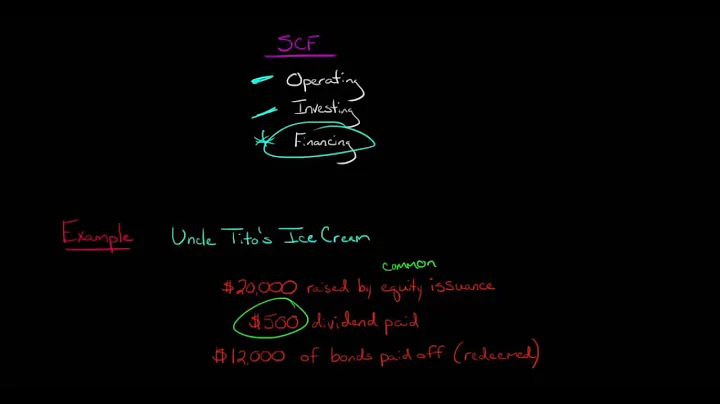 SCF
Operating
Investing
Financing
Example Uncle Tito's Ice Cream
common
$20,000 raised by equity issuance
$500 dividend paid
$12,000 of bonds paid off (redeemed)